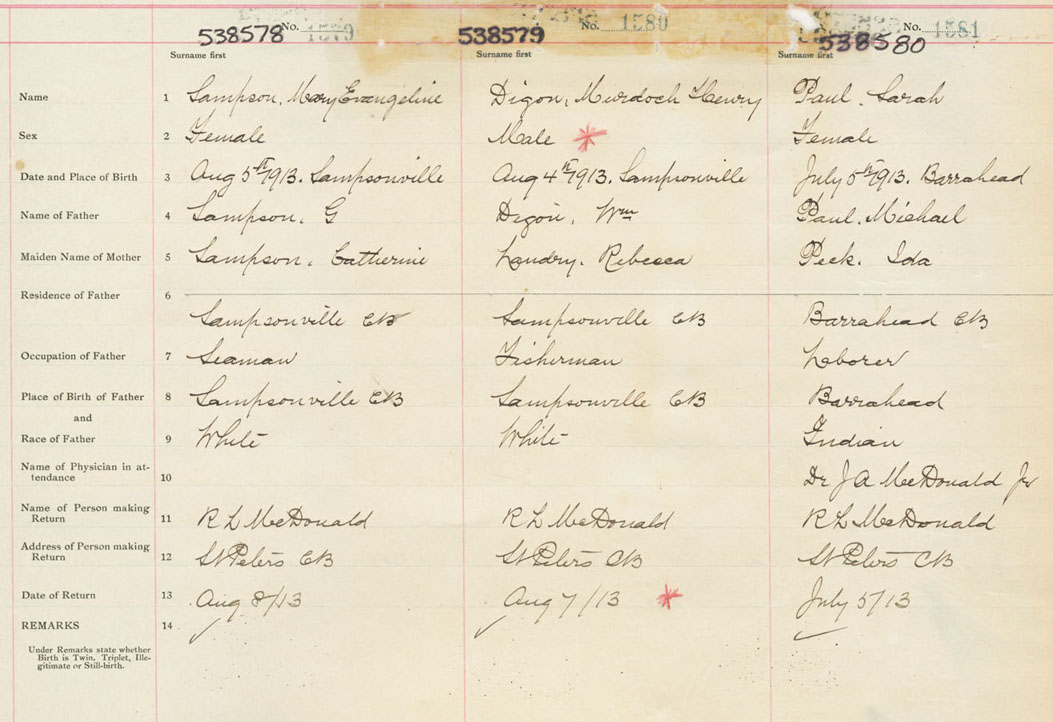 538578 No. 1579 538579 No. 1580 538580 No. 1581
Surname first Surname first Surname first
Name 1 Sampson, Mary Evangeline Digon, Murdoch Henry Paul, Sarah
Sex 2 Female Male * Female
Date and Place of Birth 3 Aug 5th 1913. Sampsonville Aug 4th 1913. Sampsonville July 5th 1913. Barrahead
Name of Father 4 Sampson, G Digon, Wm Paul, Michael
Maiden Name of Mother 5 Sampson, Catherine Landry, Rebecca Peck, Ida
Residence of Father 6
Sampsonville CB Sampsonville CB Barrahead CB
Occupation of Father 7 Seaman Fisherman Laborer
Place of Birth of Father 8 Sampsonville CB Sampsonville CB Barrahead
and
Race of Father 9 White White Indian
Name of Physician in at-
tendance 10 Dr J A McDonald Jr
Name of Person making
Return 11 R L McDonald R L McDonald R L McDonald
Address of Person making
Return 12 St Peters CB St Peters CB St Peters CB
Date of Return 13 Aug 8/13 Aug 7/13 * July 5/13
REMARKS 14
Under Remarks state whether
Birth is Twin, Triplet, Ille-
gitimate or Still-birth.